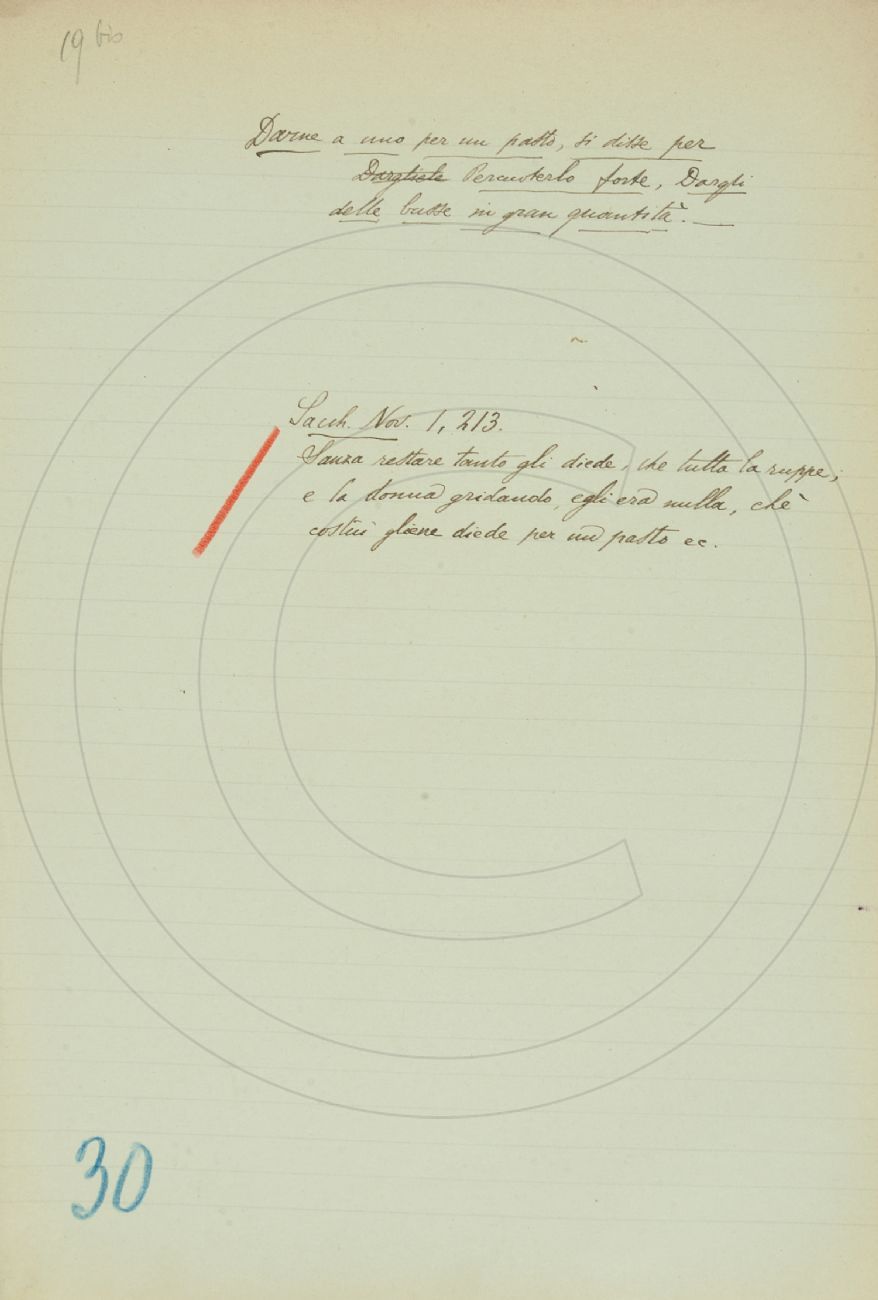 19 bis
Darne a uno per un pasto, si disse per
Dargliele Percuoterlo forte, Dargli
delle busse in gran quantità. —
Sacch. Nov. 1, 213.
Sanza restare tanto gli diede, che tutta la ruppe;
e la donna gridando, egli era nulla, chè
costui gliene diede per un pasto ec.
30